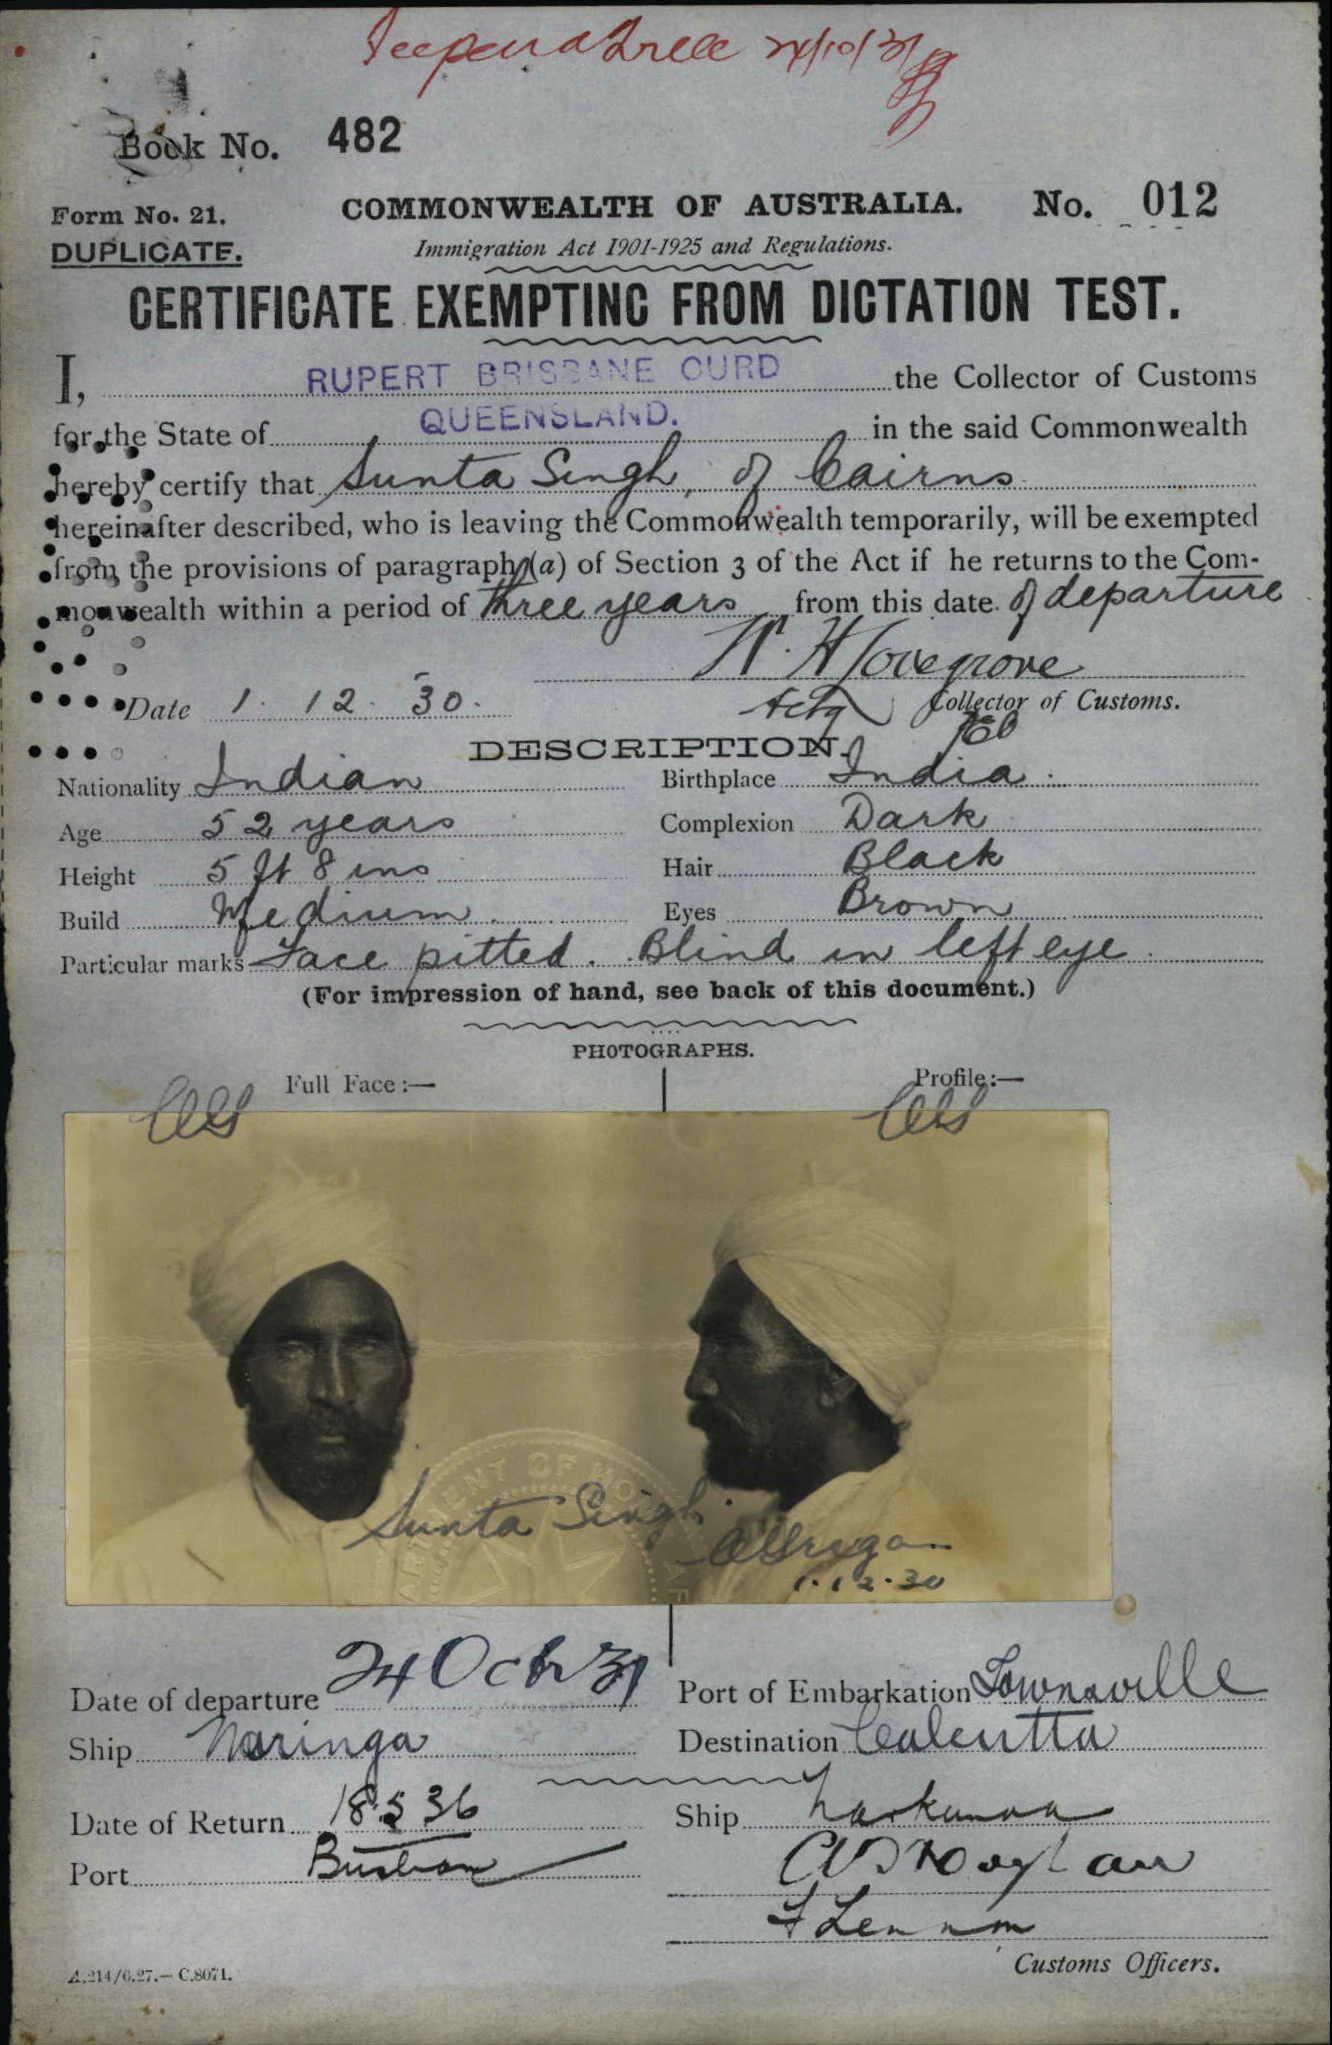 24/10/31
Book No. 482
Form No. 21.
COMMONWEALTH OF AUSTRALIA.
No. 012
DUPLICATE.
Immigration Act 1901-1925 and Regulations.
CERTIFICATE EXEMPTING FROM DICTATION TEST.
I, RUPERT BRISBANE CURD the Collector of Customs
for the State of QUEENSLAND. in the said Commonwealth
hereby certify that Sunta Singh, of Cairns
hereinafter described, who is leaving the Commonwealth temporarily, will be exempted
from the provisions of paragraph (a) of Section 3 of the Act if he returns to the Com-
monwealth within a period of three years from this date of departure
W. H Lovegrove
Date 1. 12. 30.
Actg Collector of Customs.
DESCRIPTION.
Nationality Indian
Birthplace India.
Age 52 years
Complexion Dark
Height 5 ft 8 ins
Hair Black
Build Medium
Eyes Brown
Particular marks Face pitted. Blind in left eye
(For impression of hand, see back of this document.)
PHOTOGRAPHS.
Full Face:—
Profile:—
Sunta Singh.
1.12.30
Date of departure 24 Octbr 31
Port of Embarkation Townsville
Ship Naringa
Destination Calcutta
Date of Return 18.5 36
Ship
Port
F Lennon
Customs Officers.
A.214/6.27.—C.8071.